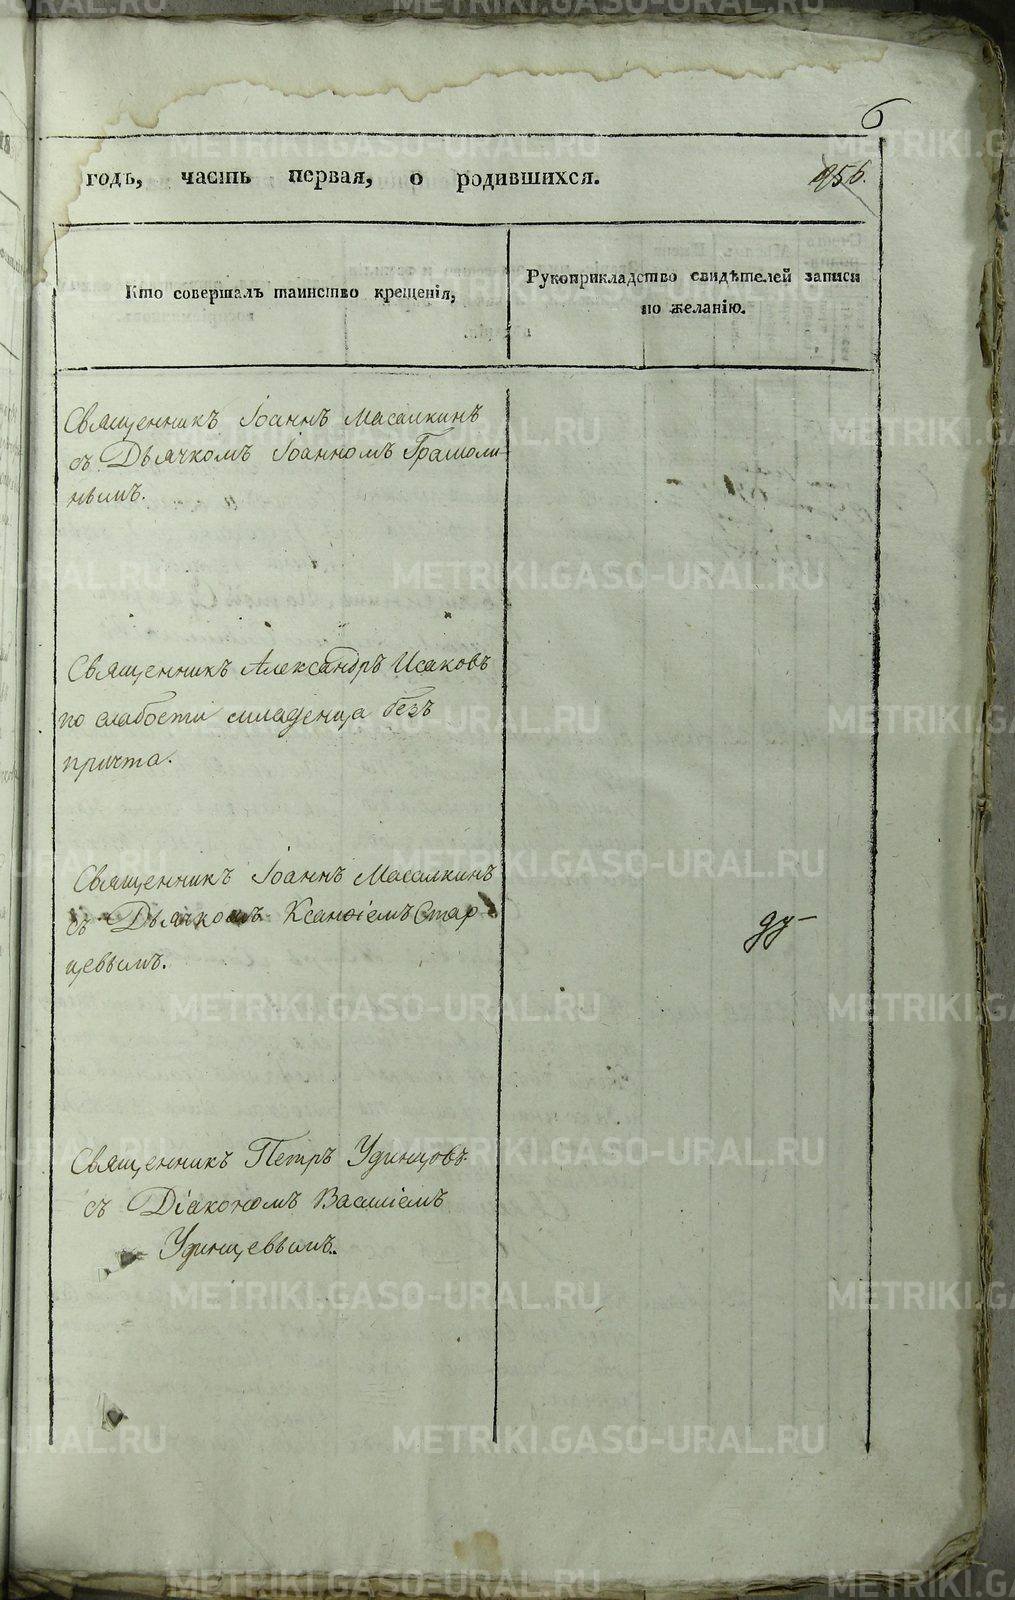 6
годъ, часть первая, о родившихся.
956.
Кто совершалъ таинство крещенія,
Рукоприкладство свидѣтелей записи
по желанію.
Священникъ Іоаннъ Масалкинъ
съ Дьячкомъ Іоанномъ Грамоли-
нымъ.
Священникъ Александръ Исаковъ
по слабости младенца безъ
причта.
Священникъ Іоаннъ Масалкинъ
съ Дьячкомъ Ксанѳіемъ Стар-
цевымъ.
Священникъ Петръ Удинцовъ
съ Діакономъ Василіемъ
Удинцевымъ.
METRIKI.GASO-URAL.RU